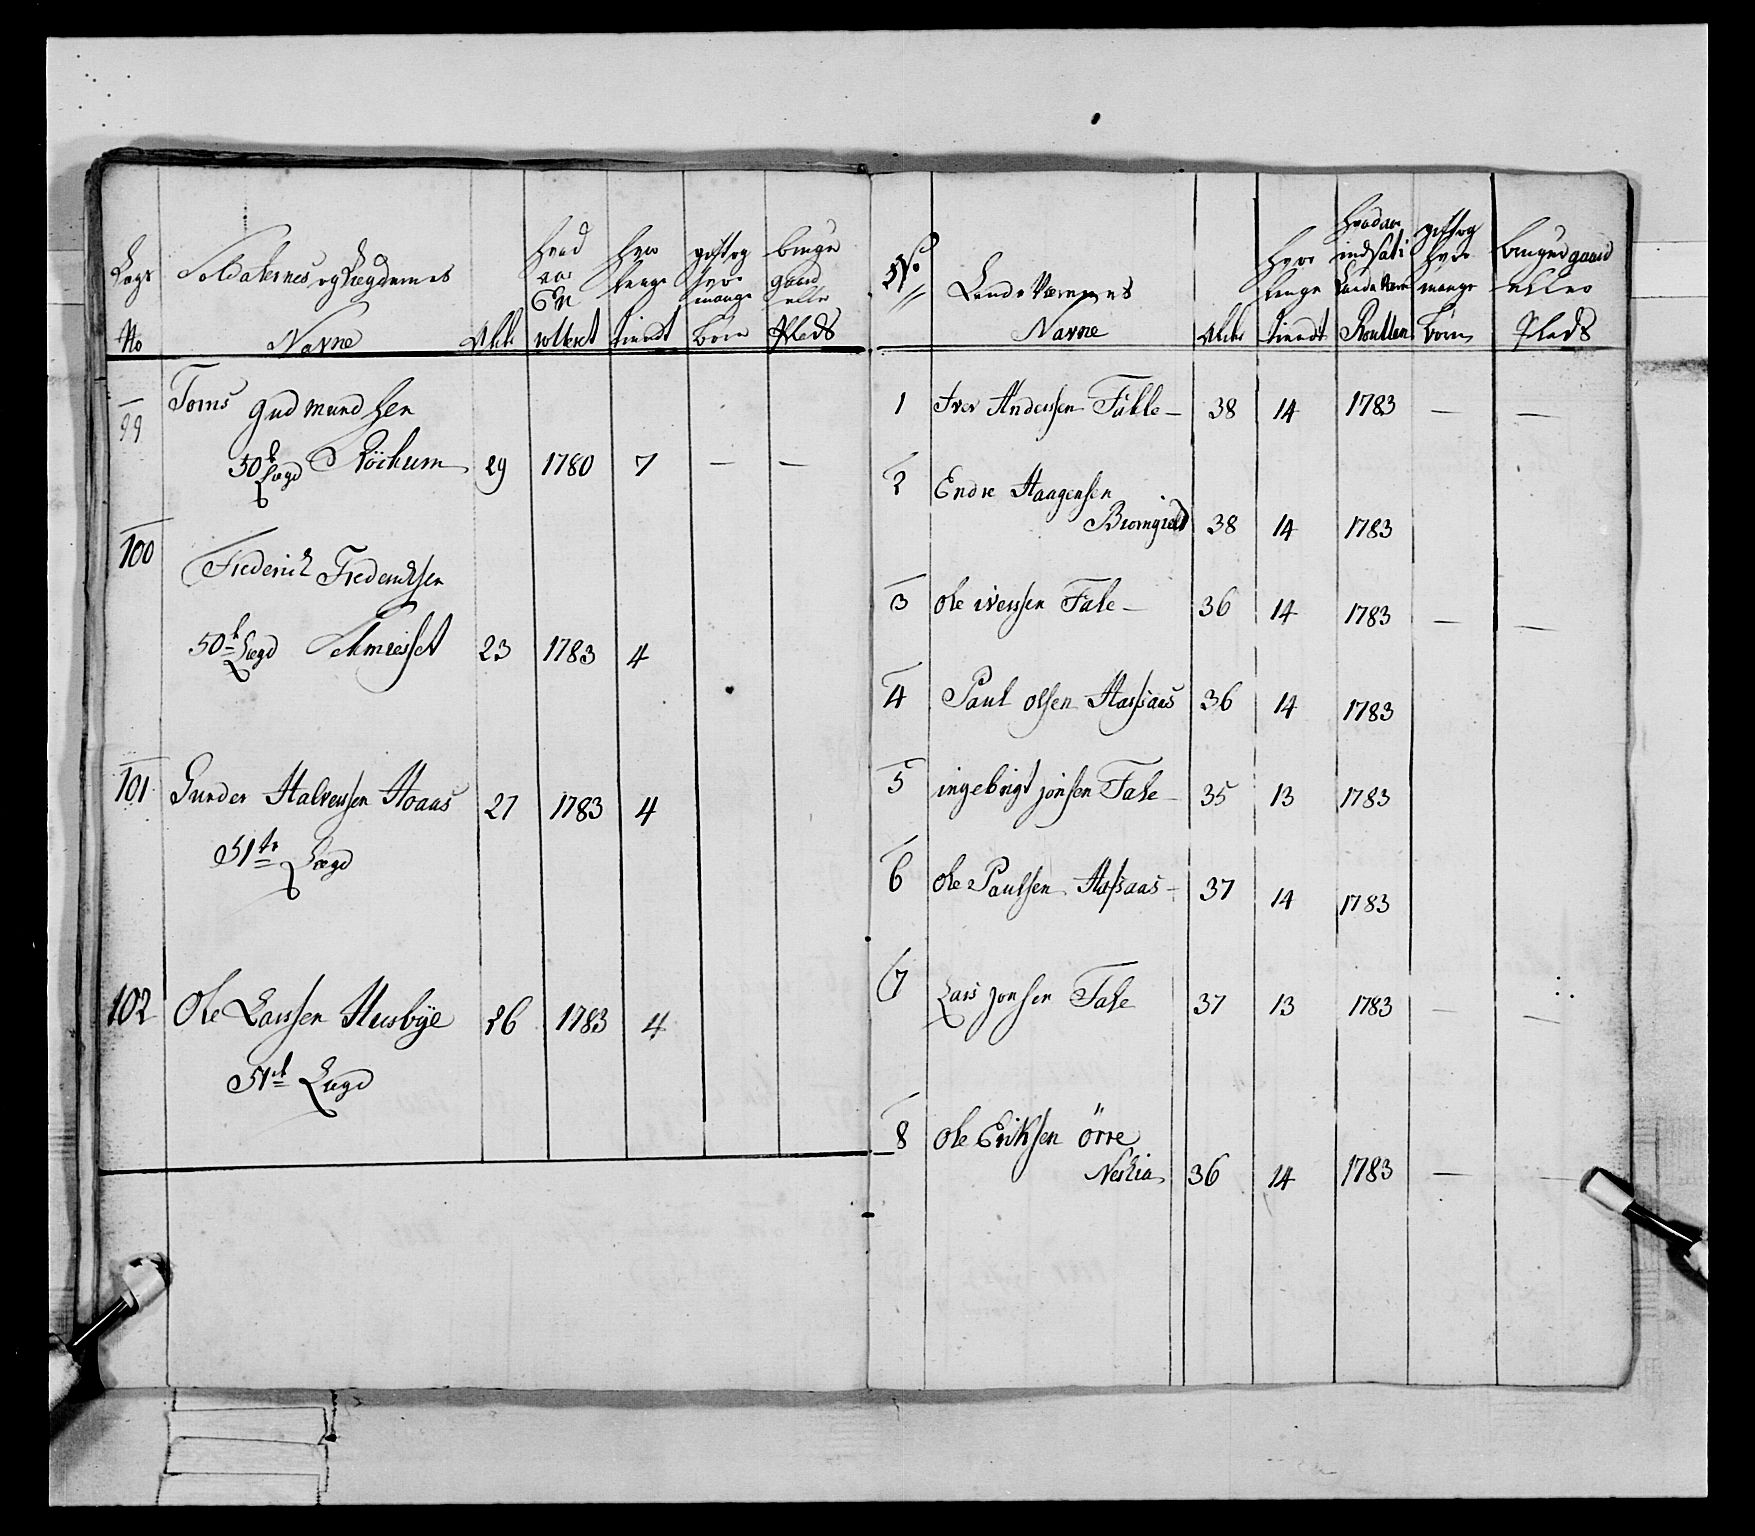 Lægs No
Soldaternes og Lægdernes Navne
Alder
hvad aar Er rolleret
hvor længe tient
gift og hvor mange børn
bruger gaard eller Plads
99
Toms Gudmundsen
50de Lægd Röckum 29 1780 7 — —
100
Frederich Fredrichsen
50de Lægd 23 1783 4
101 Gunder Halvorsen Hoaas 27 1783 4
51te Lægd
102 Ole Larssen Husbye 26 1783 4
51de Lægd
No
Lande Værnernes Navne
Alder
hvor længe tient
hvad aar indsat i Lande Værn Roullen
gift og hvor mange børn
bruger gaard eller Plads
1 Iver Anderssen Fahle — 38 14 1783 — —
2 Endre Haagensen
Biorngield 38 14 1783
3 Ole iverssen Fale — 36 14 1783 — —
4 Paul olsen Hafsaas 36 14 1783
5 ingebrigt jonsen Fale — 35 13 1783
6 Ole Paulsen Hafsaas — 37 14 1783
7 Lars jonsen Fale 37 13 1783 — —
8 Ole Eriksen örre
Neskia 36 14 1783 — —